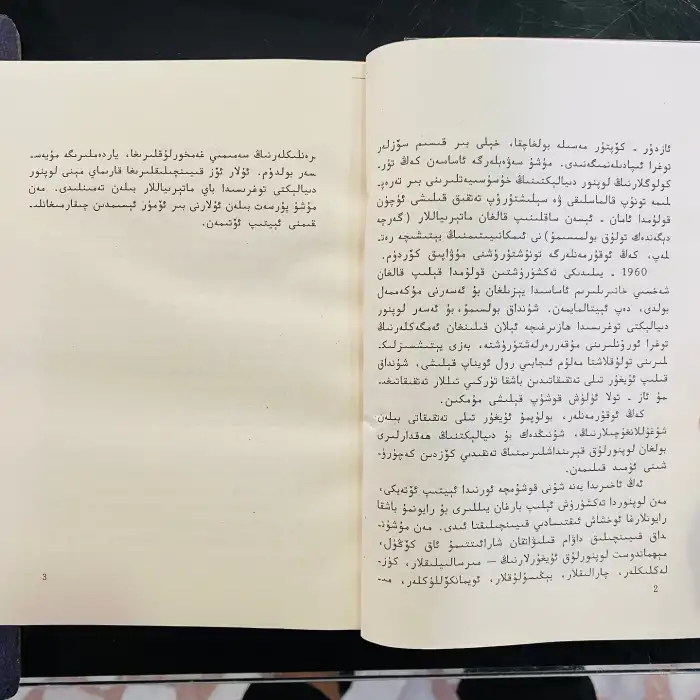 ئازدۇر - كۆپتۇر مەسىلە بولغاچقا، خېلى بىر قىسىم سۆزلەر
توغرا ئىپادىلەنمىگەنىدى. مۇشۇ سەۋەبلەرگە ئاساسەن كەڭ تۇر-
كولوگلارنىڭ لوپنۇر دىيالېكتىنىڭ خۇسۇسىيەتلىرىنى بىر تەرەپ-
لىمە تونۇپ قالماسلىقى ۋە سېلىشتۇرۇپ تەتقىق قىلىشى ئۈچۈن
قولۇمدا ئامان - ئېسەن ساقلىنىپ قالغان ماتېرىياللار (گەرچە
دېگەندەك تولۇق بولمىسىمۇ) نى ئىمكانىيىتىمنىڭ يېتىشىچە رەت-
لەپ، كەڭ ئوقۇرمەنلەرگە تونۇشتۇرۇشنى مۇۋاپىق كۆردۈم.
1960 - يىلىدىكى تەكشۈرۈشتىن قولۇمدا قېلىپ قالغان
شەخسىي خاتىرىلىرىم ئاساسىدا يېزىلغان بۇ ئەسەرنى مۇكەممەل
بولدى، دەپ ئېيتالمايمەن. شۇنداق بولسىمۇ، بۇ ئەسەر لوپنۇر
دىيالېكتى توغرىسىدا ھازىرغىچە ئېلان قىلىنغان ئەمگەكلەرنىڭ
توغرا ئورۇنلىرىنى مۇقەررەرلەشتۈرۈشتە، بەزى يېتىشسىزلىك-
لىرىنى تولۇقلاشتا مەلۇم ئىجابىي رول ئويناپ قېلىشى، شۇنداق
قىلىپ ئۇيغۇر تىلى تەتقىقاتىدىن باشقا تۈركىي تىللار تەتقىقاتىغى-
مۇ ئاز - تولا ئۈلۈش قوشۇپ قېلىشى مۇمكىن.
كەڭ ئوقۇرمەنلەر، بولۇپمۇ ئۇيغۇر تىلى تەتقىقاتى بىلەن
شۇغۇللانغۇچىلارنىڭ، شۇنىڭدەك بۇ دىيالېكتنىڭ ھەقدارلىرى
بولغان لوپنۇرلۇق قېرىنداشلىرىمنىڭ تەنقىدىي كۆزدىن كەچۈرۈ-
شىنى ئۈمىد قىلىمەن.
ئەڭ ئاخىرىدا يەنە شۇنى قوشۇمچە ئورنىدا ئېيتىپ ئۆتەيكى،
مەن لوپنۇردا تەكشۈرۈش ئېلىپ بارغان يىللىرى بۇ رايونمۇ باشقا
رايونلارغا ئوخشاش ئىقتىسادىي قىيىنچىلىقتا ئىدى. مەن مۇشۇن-
داق قىيىنچىلىق داۋام قىلىۋاتقان شارائىتتىمۇ ئاق كۆڭۈل،
مېھماندوست لوپنۇرلۇق ئۇيغۇرلارنىڭ — مىرسالىيلىقلار، كۈز-
لەكلىكلەر، چارالىقلار، يېڭىسۇلۇقلار، ئويمانكۆللۈكلەر، مى-
2
رەنلىكلەرنىڭ سەمىمىي غەمخورلۇقلىرىغا، ياردەملىرىگە مۇيەس-
سەر بولدۇم. ئۇلار ئۆز قىيىنچىلىقلىرىغا قارىماي مېنى لوپنۇر
دىيالېكتى توغرىسىدا باي ماتېرىياللار بىلەن تەمىنلىدى. مەن
مۇشۇ پۇرسەت بىلەن ئۇلارنى بىر ئۆمۈر ئېسىمدىن چىقارمىغانلى-
قىمنى ئېيتىپ ئۆتىمەن.
3